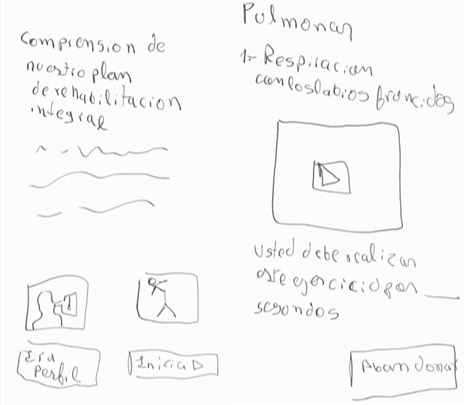 Comprension de
nuestro plan
de rehabilitacion
integral
Era
Perfil
Inicia
Pulmonar
1- Respiracion
con los labios fruncidos
Usted debe realizar
este ejercicio por ____
segundos
Abandonar